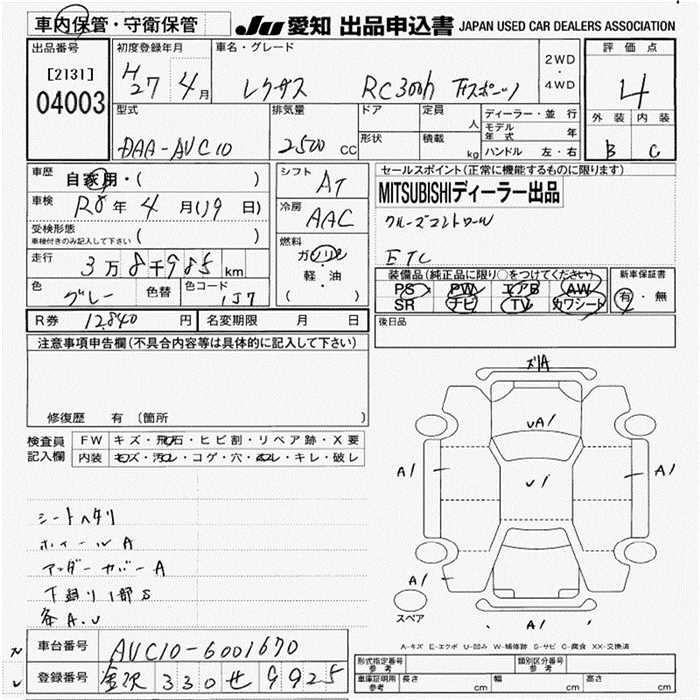 車内保管・守衛保管
JU 愛知 出品申込書 JAPAN USED CAR DEALERS ASSOCIATION
出品番号
[2131]
04003
初度登録年月
H27 4月
車名・グレード
レクサス RC300h Fスポーツ
2WD
・
4WD
評価点
4
外装 内装
B C
型式
DAA-AVC10
排気量
2500 CC
ドア
形状
定員
人
積載
kg
ディーラー・並行
モデル年式 年
ハンドル 左・右
車歴
自家用・( )
車検
R8年 4月(19日)
受検形態
車検付きのみ記入して下さい ( )
走行
3万8千985km
色
グレー
色替
色コード
1J7
シフト
AT
冷房
AAC
燃料
ガソリン
軽・油
( )
セールスポイント(正常に機能するものに限ります)
MITSUBISHIディーラー出品
クルーズコントロール
ETC
装備品(純正品に限り○をつけてください)
PS PW エアB AW
SR ナビ TV カワシート
新車保証書
有・無
後日品
R券 12,840 円
名変期限 月 日
注意事項申告欄(不具合内容等は具体的に記入して下さい)
修復歴 有 〔箇所
検査員記入欄
FW キズ・飛石・ヒビ割・リペア跡・X要
内装 キズ・汚レ・コゲ・穴・スレ・キレ・破レ
シートヘタリ
ホイールA
アンダーカバーA
下廻り1部S
各A.U
ズリA
UA1
A1
U1
A1
A1
A1
スペア
A-キズ E-エクボ U-凹み W-補修跡 S-サビ C-腐食 XX-交換済
車台番号 AVC10-6001670
登録番号 金沢 330 せ 9925
形式指定番号
参考
類別区分番号
参考
車庫証明用
参考
長さ cm 幅 cm 高さ cm